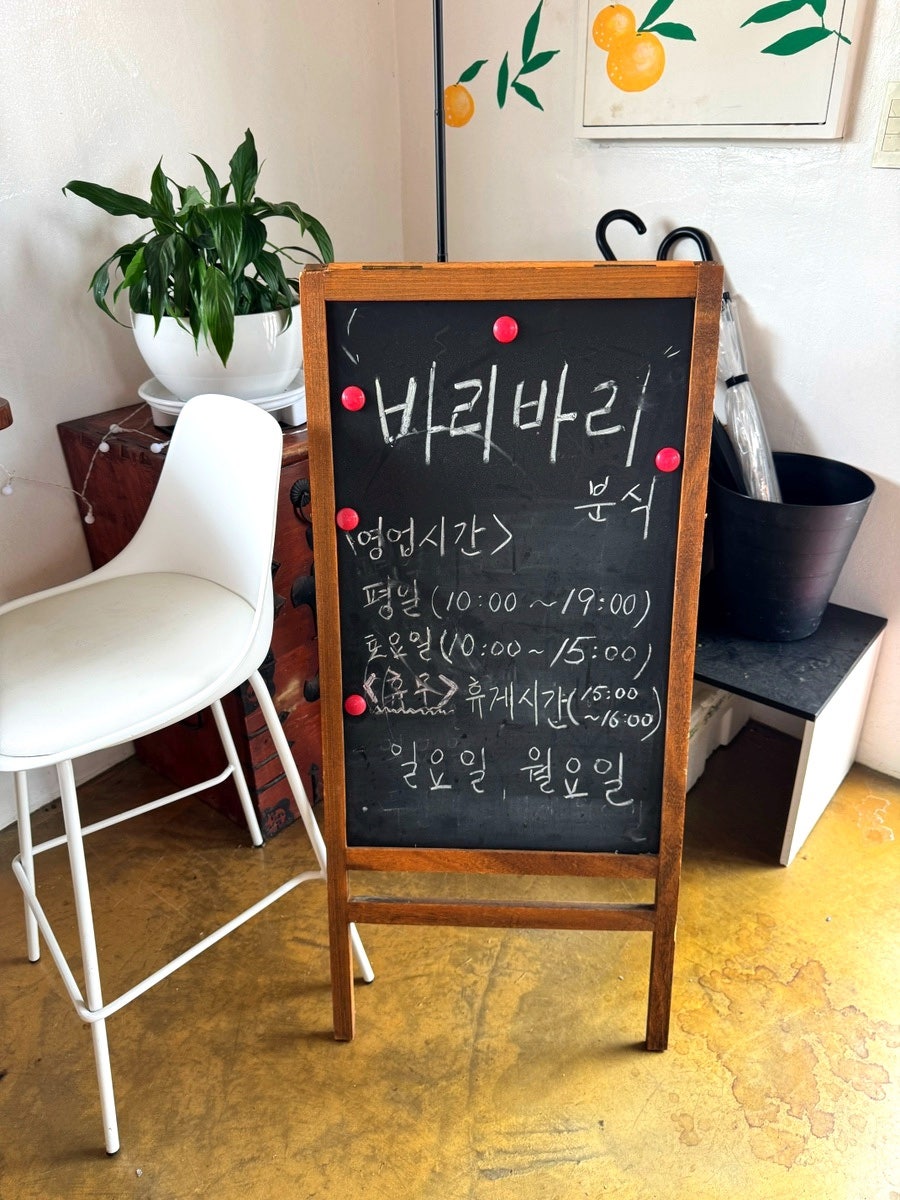 바리바리
분식
<영업시간>
평일 (10:00 ~ 19:00)
토요일 (10:00 ~ 15:00)
<휴무> 휴게시간 (15:00
~16:00)
일요일 월요일